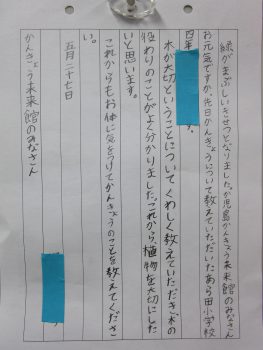 緑がまぶしいきせつとなりました。か児島かんきょう未来館のみなさん
お元気ですか。先日かんきょうについて教えていただいたあら田小学校
四年
木が大切ということについてくわしく教えていただき、木の
役わりのことがよく分かりました。これから、植物を大切にした
いと思います。
これからもお体に気をつけてかんきょうのことを教えてくださ
い。
五月二十七日
かんきょう未来館のみなさん